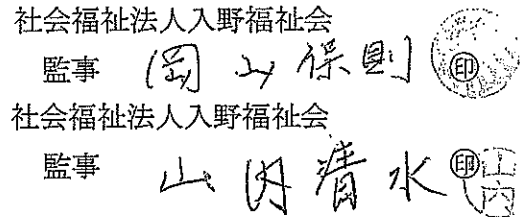 社会福祉法人入野福祉会
監事 岡山保則 ㊞
社会福祉法人入野福祉会
監事 山内清水 ㊞ 山内